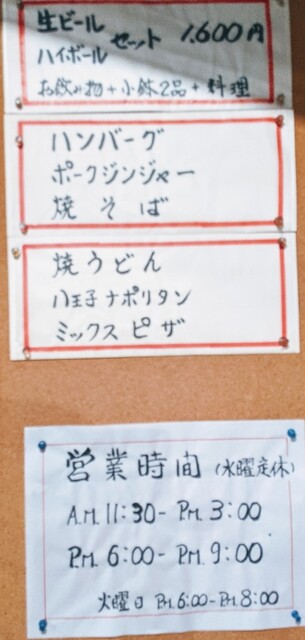 生ビール
ハイボール
セット 1.600円
お飲み物+小鉢2品+料理
ハンバーグ
ポークジンジャー
焼そば
焼うどん
八王子ナポリタン
ミックスピザ
営業時間 (水曜定休)
A.M.11:30-P.M.3:00
P.M.6:00-P.M.9:00
火曜日 P.M.6:00-P.M.8:00